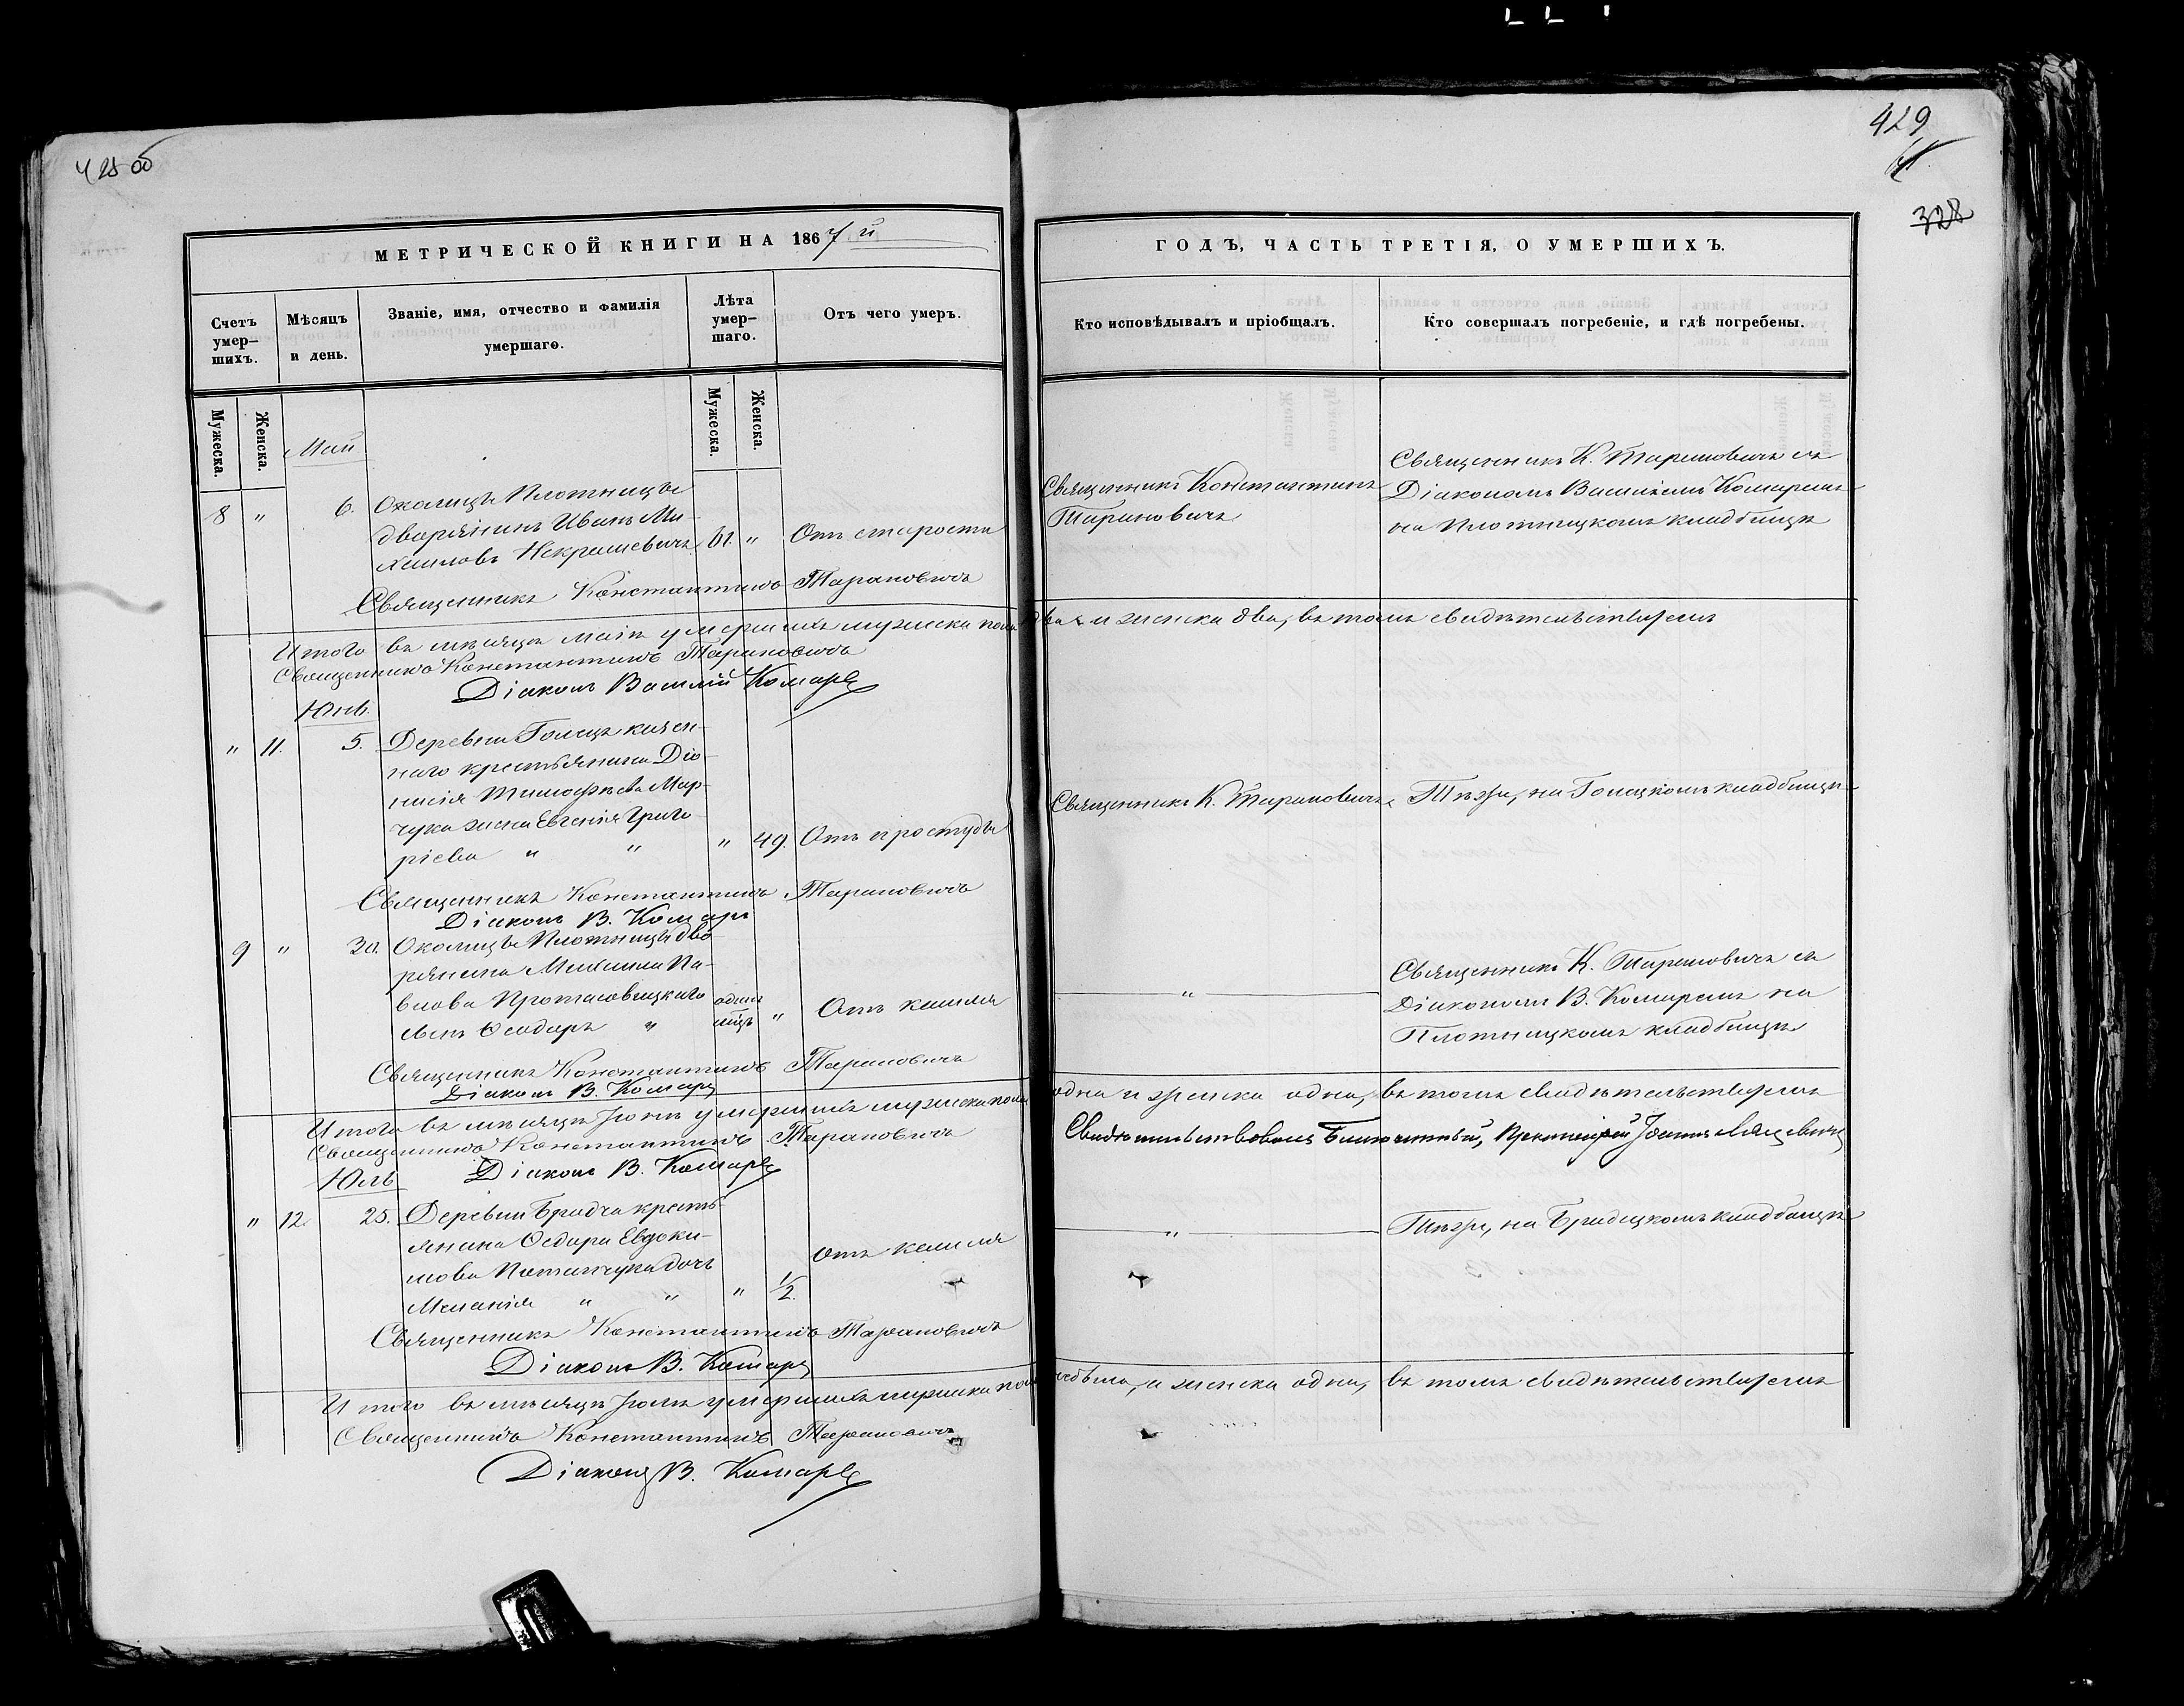 428 об
429
328
МЕТРИЧЕСКОЙ КНИГИ НА 1867 й
ГОДЪ, ЧАСТЬ ТРЕТІЯ, О УМЕРШИХЪ.
Счетъ умер-шихъ.
Мѣсяцъ и день.
Званіе, имя, отчество и фамилія умершаго.
Лѣта умер-шаго.
Отъ чего умеръ.
Кто исповѣдывалъ и пріобщалъ.
Кто совершалъ погребеніе, и гдѣ погребены.
Мужеска.
Женска.
Мужеска.
Женска.
Май
8 " 6. Околицы Плотницы
дворянинъ Иванъ Ми-
хаиловъ Некрашевичъ 61. " Отъ старости
Священникъ Константинъ
Тарановичъ
Священникъ К. Тарановичъ съ
Діакономъ Василіемъ Комаремъ
на Плотницкомъ кладбищѣ
Священникъ Константинъ Тарановичъ
Итого въ мѣсяцѣ маѣ умершихъ мужеска пола два и женска два, въ томъ свидѣтельствуемъ
Священникъ Константинъ Тарановичъ
Діаконъ Василій Комаръ
Юнь
" 11. 5. Деревни Гольцъ казен-
наго крестьянина Діо-
нисія Тимофѣева Мар-
чука жена Евгенія Григо-
ріева " " " 49. Отъ простуды
Священникъ К. Тарановичъ
Тѣже, на Голецкомъ кладбищѣ
Священникъ Константинъ Тарановичъ
Діаконъ В. Комаръ
9 " 30. Околицы Плотницы дво-
рянина Михаила Па-
влова Протасовицкаго
сынъ Ѳеодоръ " одинъ мѣц. " Отъ кашля
"
Священникъ К. Тарановичъ съ
Діакономъ В. Комаремъ на
Плотницкомъ кладбищѣ
Священникъ Константинъ Тарановичъ
Діаконъ В. Комаръ
Итого въ мѣсяцѣ Іюнѣ умершихъ мужеска пола одна и женска одна, въ томъ свидѣтельствуемъ
Священникъ Константинъ Тарановичъ
Діаконъ В. Комаръ
Свидѣтельствовалъ Благочинный, Іоаннъ
Юль
" 12. 25. Деревни Бродча кресть-
янина Ѳедора Евдоки-
мова дочь
Меланія " " " 1/2. Отъ кашля
"
Тѣже, на Бродецкомъ кладбищѣ
Священникъ Константинъ Тарановичъ
Діаконъ В. Комаръ
Итого въ мѣсяцѣ Іюлѣ умершихъ мужеска пола небыло, и женска одна, въ томъ свидѣтельствуемъ
Священникъ Константинъ Тарановичъ
Діаконъ В. Комаръ